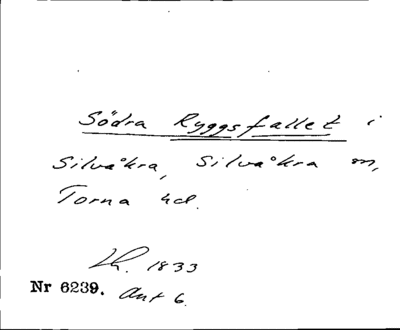 Södra Ryggsfallet i
Silvåkra, Silvåkra sn,
Torna hd.
Lh. 1833
Nr 6239. Ant 6.